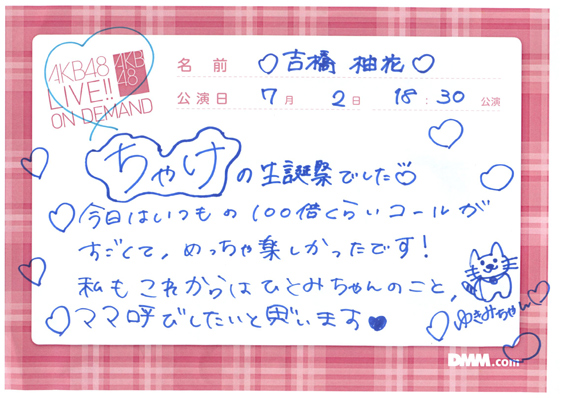 AKB48
LIVE!!
ON DEMAND
AKB
48
名 前 ♡吉橋 柚花♡
公演日 7月 2日 18:30 公演
ちゃけの生誕祭でした
♡今日はいつもの100倍くらいコールが
すごくて、めっちゃ楽しかったです！
私もこれからはひとみちゃんのこと、
♡ママ呼びしたいと思います♥
ゆきみちゃん
DMM.com